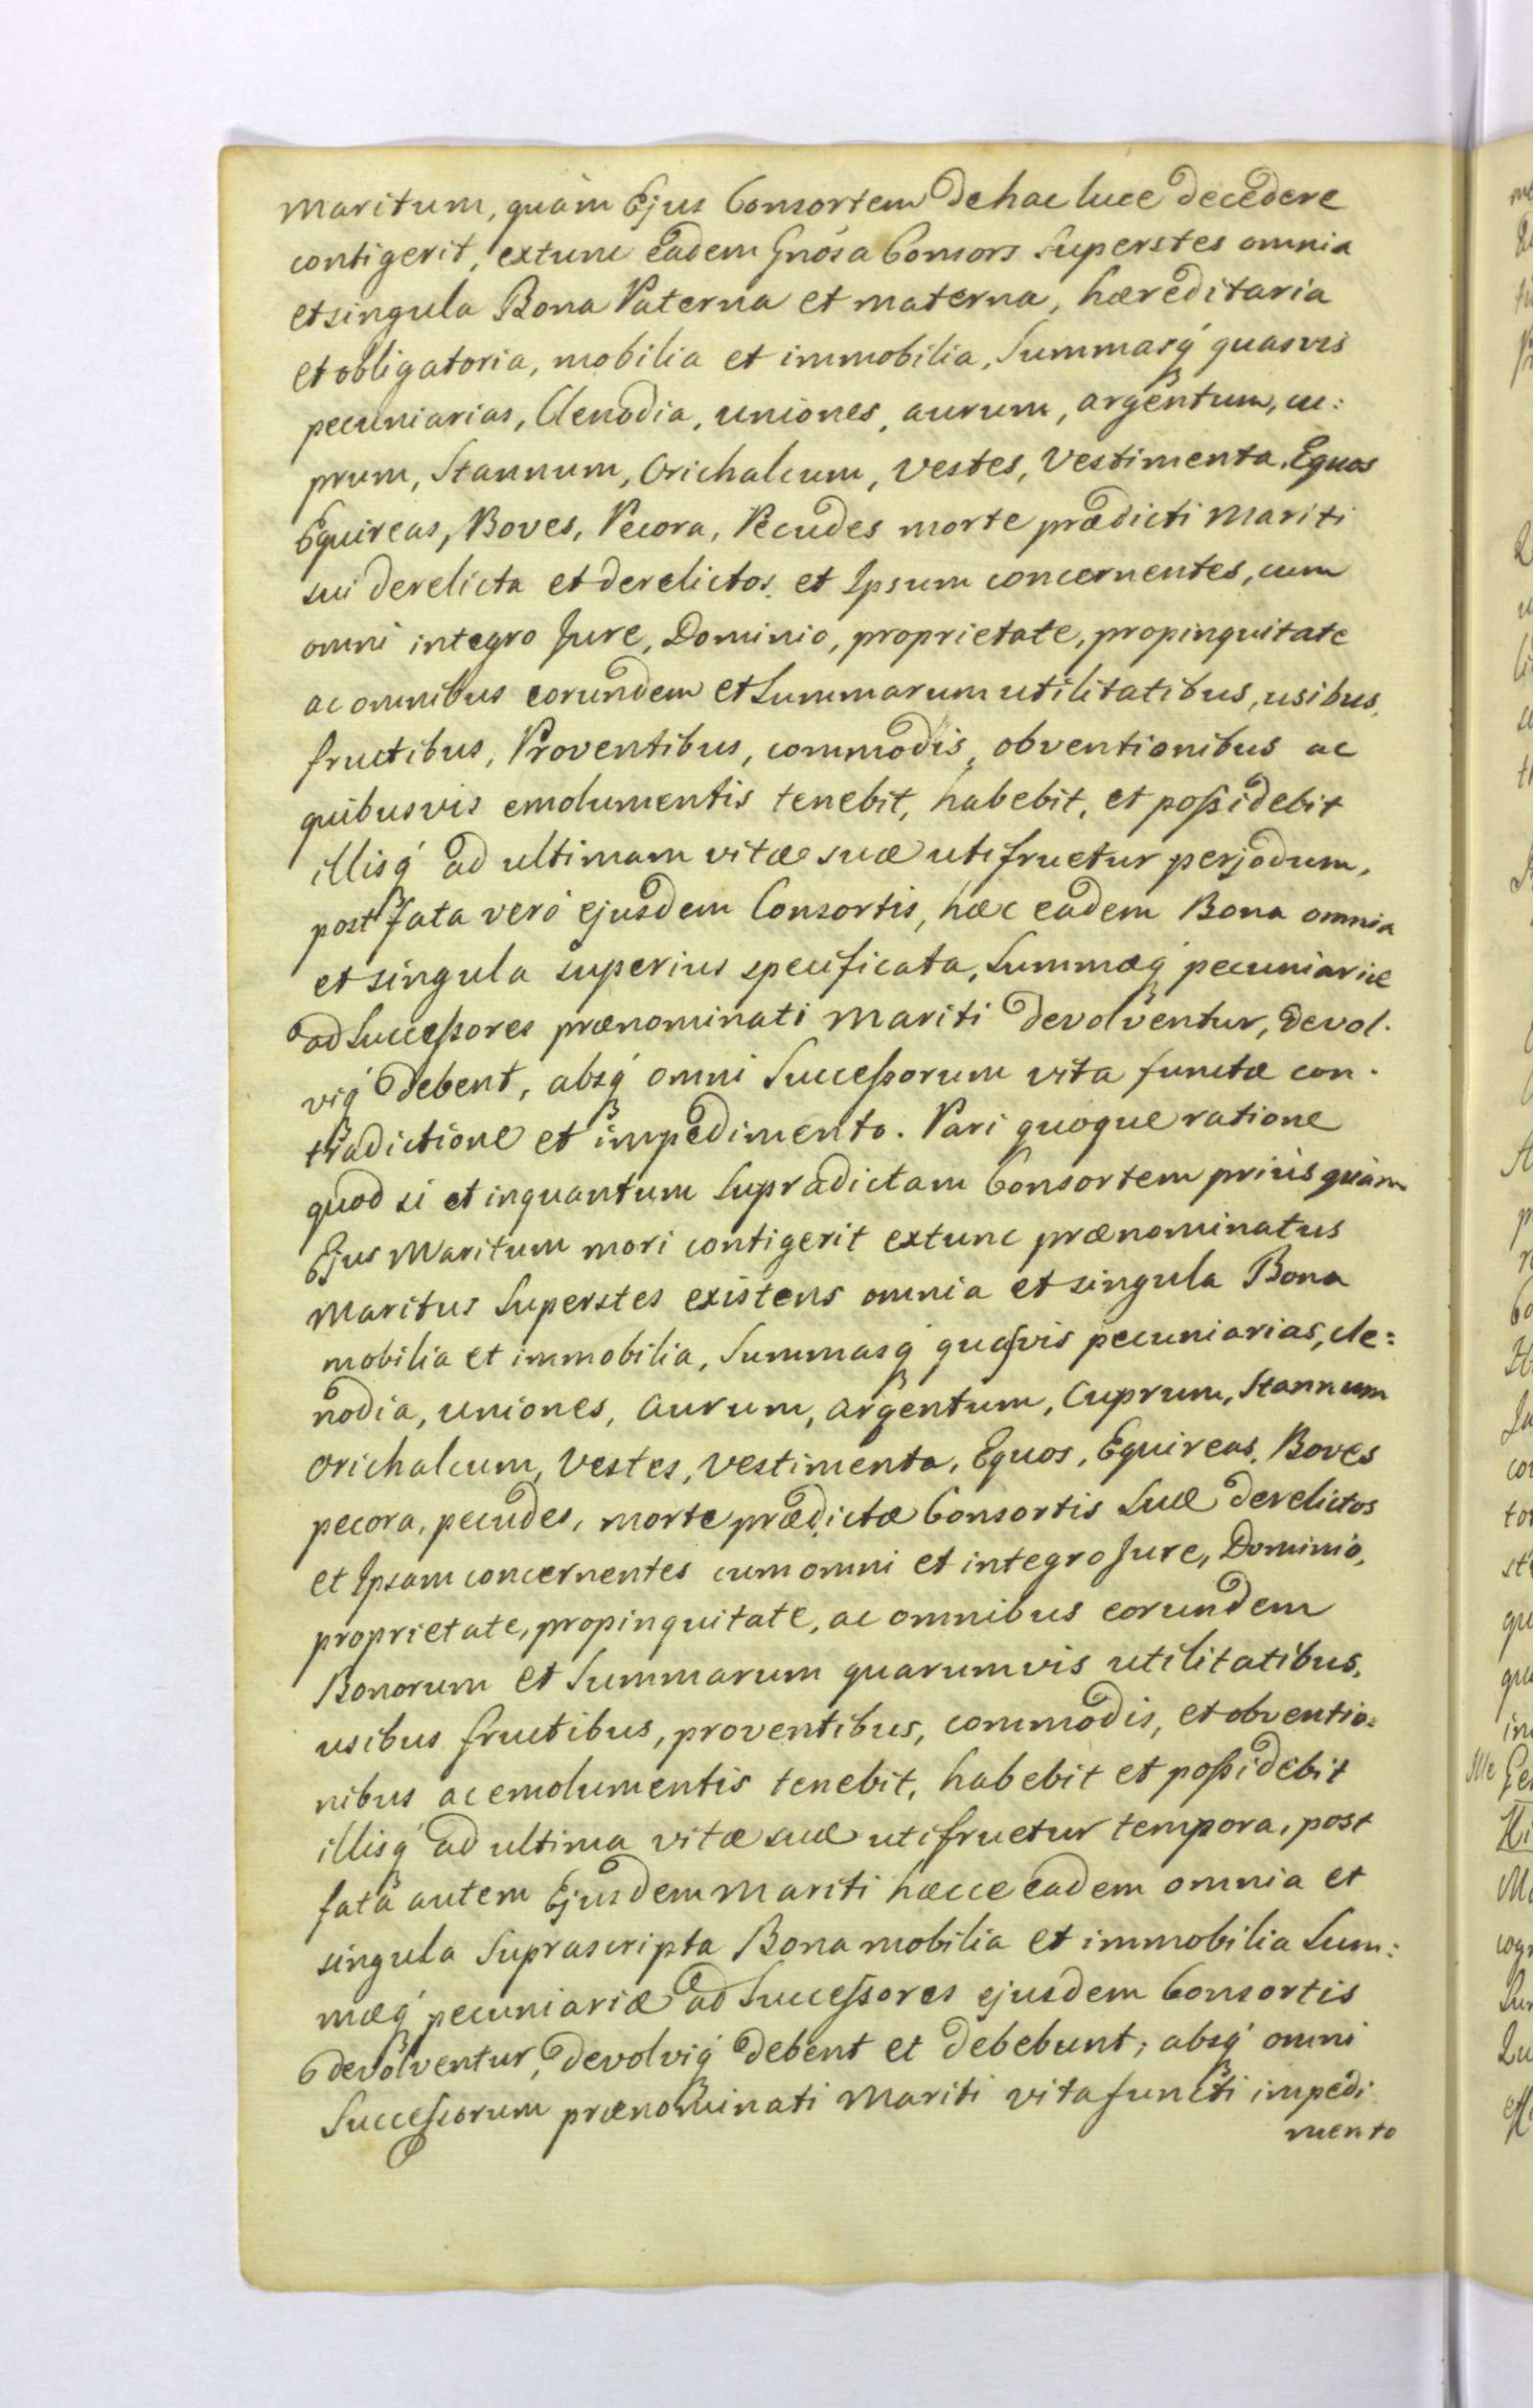 maritum, quàm Ejus Consortem de hac luce decedere
contigerit, extunc eadem Gnósa Consors superstes omnia
et singula Bona Paterna et materna, hæreditaria
et obligatoria, mobilia et immobilia, Summasq́ quasvis
pecuniarias, Clenodia, uniones, aurum, argentum, cu:
prum, Stannum, Orichalcum, vestes, Vestimenta, Equos
Equireas, Boves, Pecora, Pecudes morte prædicti Mariti
sui derelicta et derelictos et Ipsum concernentes, cum
omni integro Jure, Dominio, proprietate, propinquitate
ac omnibus eorundem et Summarum utilitatibus, usibus,
fructibus, Proventibus, commodis, obventionibus ac
quibusvis emolumentis tenebit, habebit, et poßidebit
illisq́ ad ultimam vitæ suæ utifruetur perjodum,
post fata veró ejusdem Consortis, hæc eadem Bona omnia
et singula superius specificata, Summæq́ pecuniariæ
ad Succeßores prænominati Mariti devolventur, devol.
viq́ debent, absq́ omni Succeßorum vita functæ con.
tradictione et impedimento. Pari quoque ratione
quod si et inquantum Supradictam Consortem priús quàm
Ejus Maritum mori contigerit extunc prænominatus
Maritus Superstes existens omnia et singula Bona
mobilia et immobilia, Summasq́ quasvis pecuniarias, cle:
nodia, uniones, aurum, argentum, Cuprum, Stannum
Orichalcum, Vestes, vestimenta, Equos, Equireas, Boves
pecora, pecudes, morte prædictæ Consortis Suæ derelictos
et Ipsam concernentes cum omni et integro Jure, Dominio,
proprietate, propinquitate, ac omnibus eorundem
Bonorum et Summarum quarumvis utilitatibus,
usibus fructibus, proventibus, commodis, et obventio:
nibus ac emolumentis tenebit, habebit et poßidebit
illisq́ ad ultima vitæ suæ utifruetur tempora, post
fata autem Ejusdem Mariti hæcce eadem omnia et
singula Suprascripta Bona mobilia et immobilia Sum:
mæq́ pecuniariæ ad Succeßores ejusdem Consortis
devolventur, devolviq́ debent et debebunt, absq́ omni
Succeßorum prænominati Mariti vita functi impedi
mento